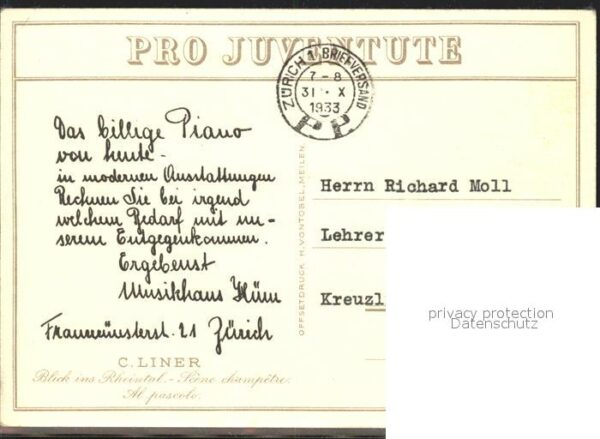 PRO JUVENTUTE
ZÜRICH 1 BRIEFVERSAND
7-8
31. X
1933
PP
Das billige Piano
von heute -
in modernen Ausstattungen
Rechnen Sie bei irgend
welchem Bedarf mit un-
serem Entgegenkommen.
Ergebenst
Musikhaus Hüni
Fraumünsterst. 21 Zürich
C. LINER
Blick ins Rheintal. - Scène champêtre.
Al pascolo.
OFFSETDRUCK H. VONTOBEL, MEILEN.
Herrn Richard Moll
Lehrer
Kreuzl
privacy protection
Datenschutz